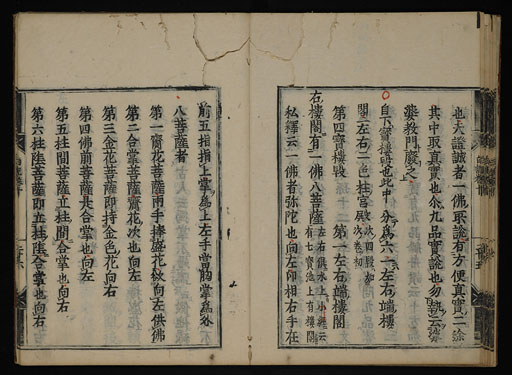 也夫證誠者一佛眾説有方便真實二途
其中取真實也尒九品寶説也勿執云
教門嚴之
自下寶樓叚也此中分為六一左右端樓
閣二左右二色柱宮殿
第四寶樓叚 第一左右端樓閣
右樓閣有一佛八菩薩
私釋云一佛者弥陀也向左仰相右手在
前五指指上掌為上左手當胸掌為外
八菩薩者
第一寶花菩薩兩手捧盛花向左供佛
第二合掌菩薩花次也向左
第三金花菩薩即持金色花向右
第四佛前菩薩共合掌也向左
第五柱間菩薩立柱間合掌也向右
第六柱陰菩薩即立柱陰合掌也向右